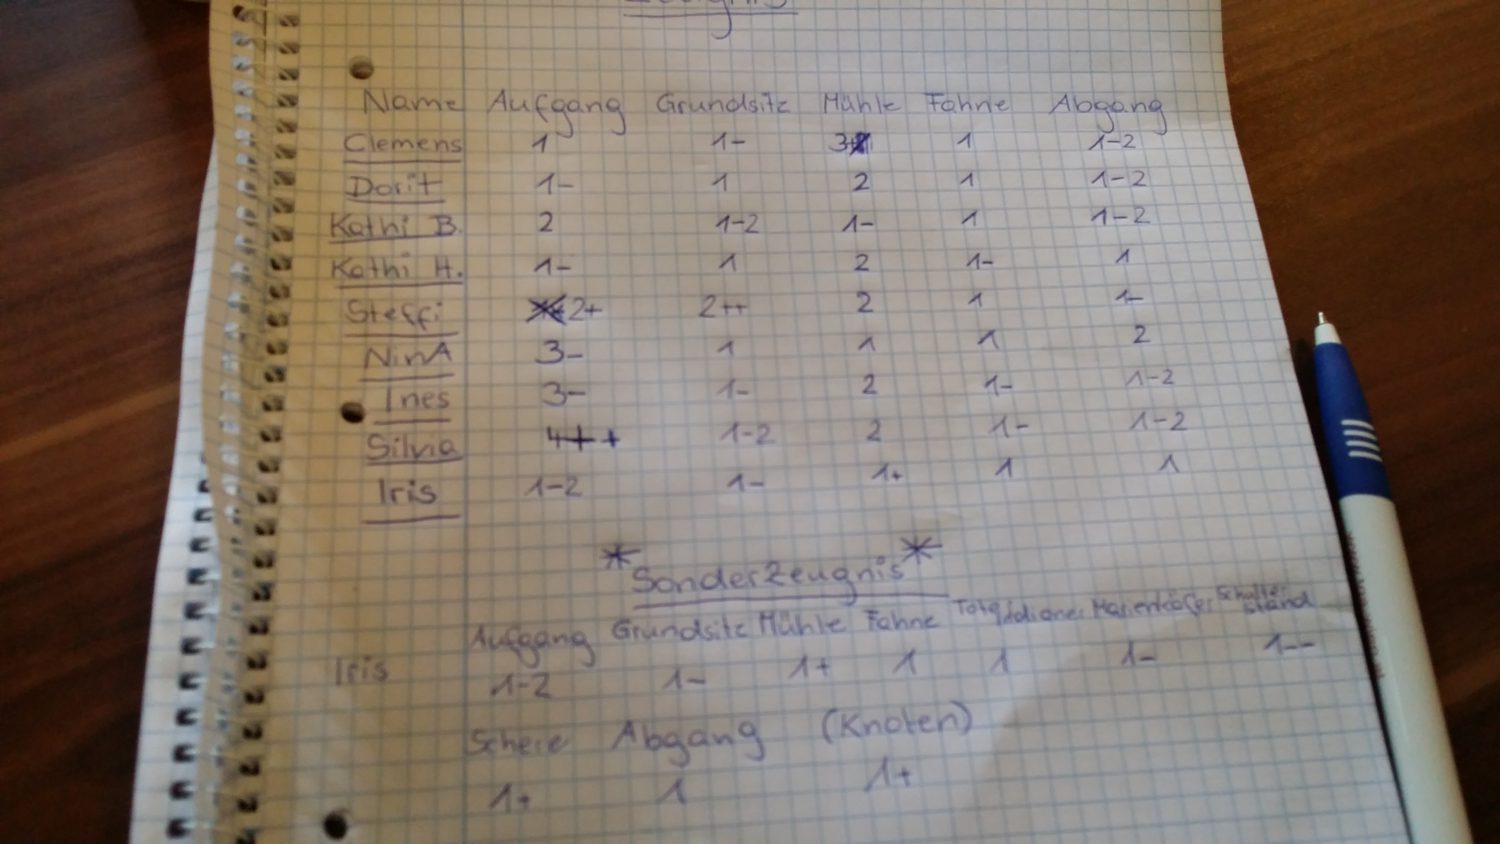 Zeugnis
Name Aufgang Grundsitz Mühle Fahne Abgang
Clemens 1 1- 3 1 1-2
Dorit 1- 1 2 1 1-2
Kathi B. 2 1-2 1- 1 1-2
Kathi H. 1- 1 2 1- 1
Steffi 2+ 2++ 2 1 1-
NinA 3- 1 1 1 2
Ines 3- 1- 2 1- 1-2
Silvia 4++ 1-2 2 1- 1-2
Iris 1-2 1- 1+ 1 1
*SonderZeugnis*
Aufgang Grundsitz Mühle Fahne Marienkäfer Schulterstand
Iris 1-2 1- 1+ 1 1 1- 1--
Schere Abgang (Knoten)
1+ 1 1+